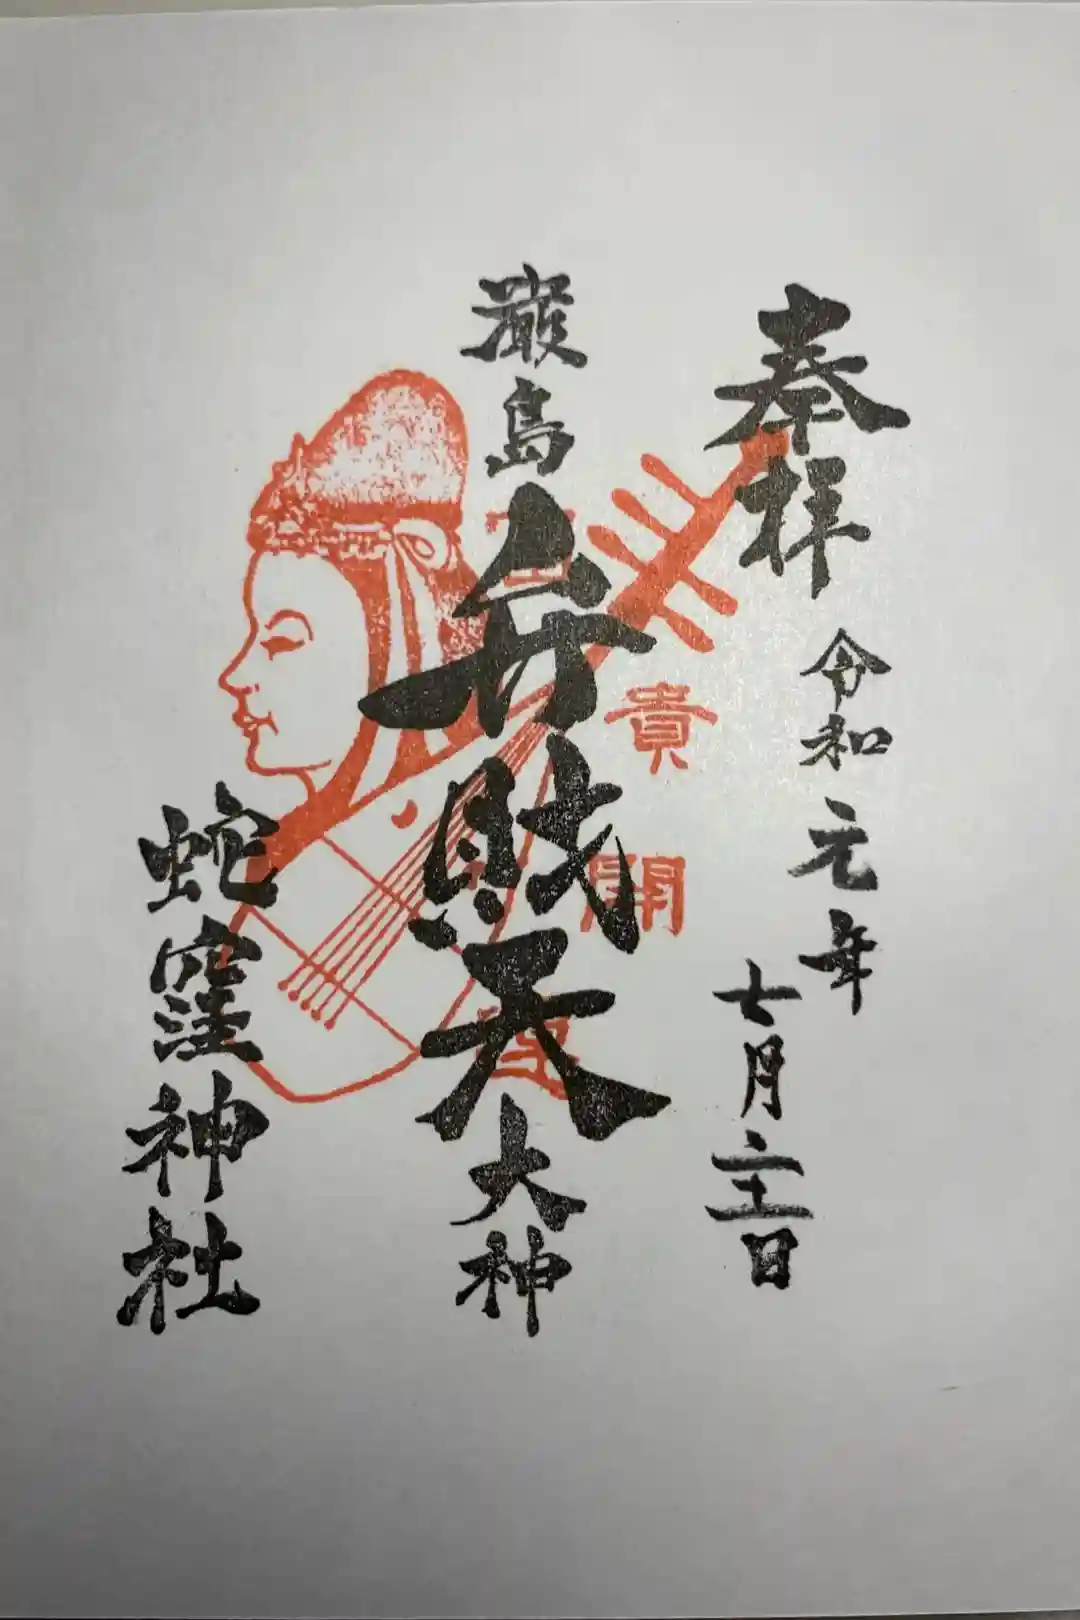 奉拝 令和元年 七月二十一日
厳島弁財天大神
蛇窪神社
貴
開
運